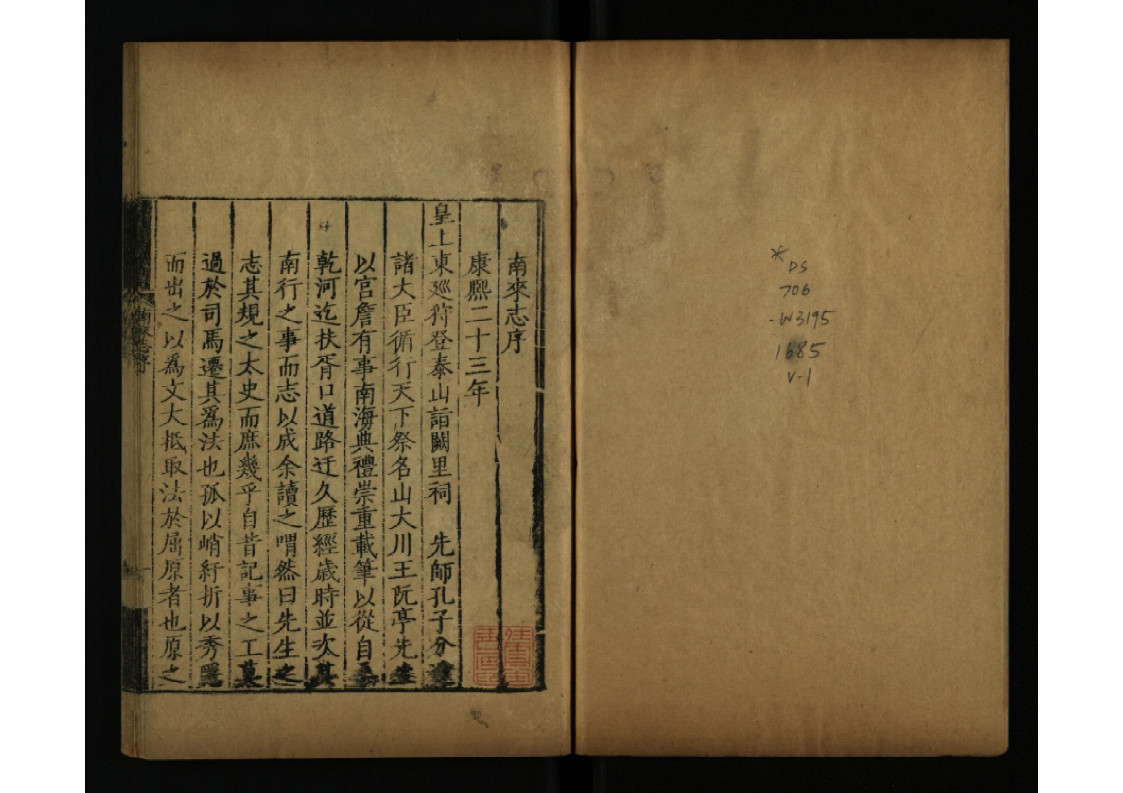 *
DS
706
.W3195
1685
v-1
南來志序
康熈二十三年
皇上東廵狩登泰山詣闕里祠 先師孔子分遣
諸大臣循行天下祭名山大川王阮亭先生
以宮詹有事南海典禮崇重載筆以從自桑
乾河迄扶胥口道路迂久歷經歲時並次其
南行之事而志以成余讀之喟然曰先生之
志其規之太史而庶幾乎自昔記事之工莫
過於司馬遷其爲法也孤以峭紆折以秀麗
而出之以爲文大抵取法於屈原者也原之
南來志序